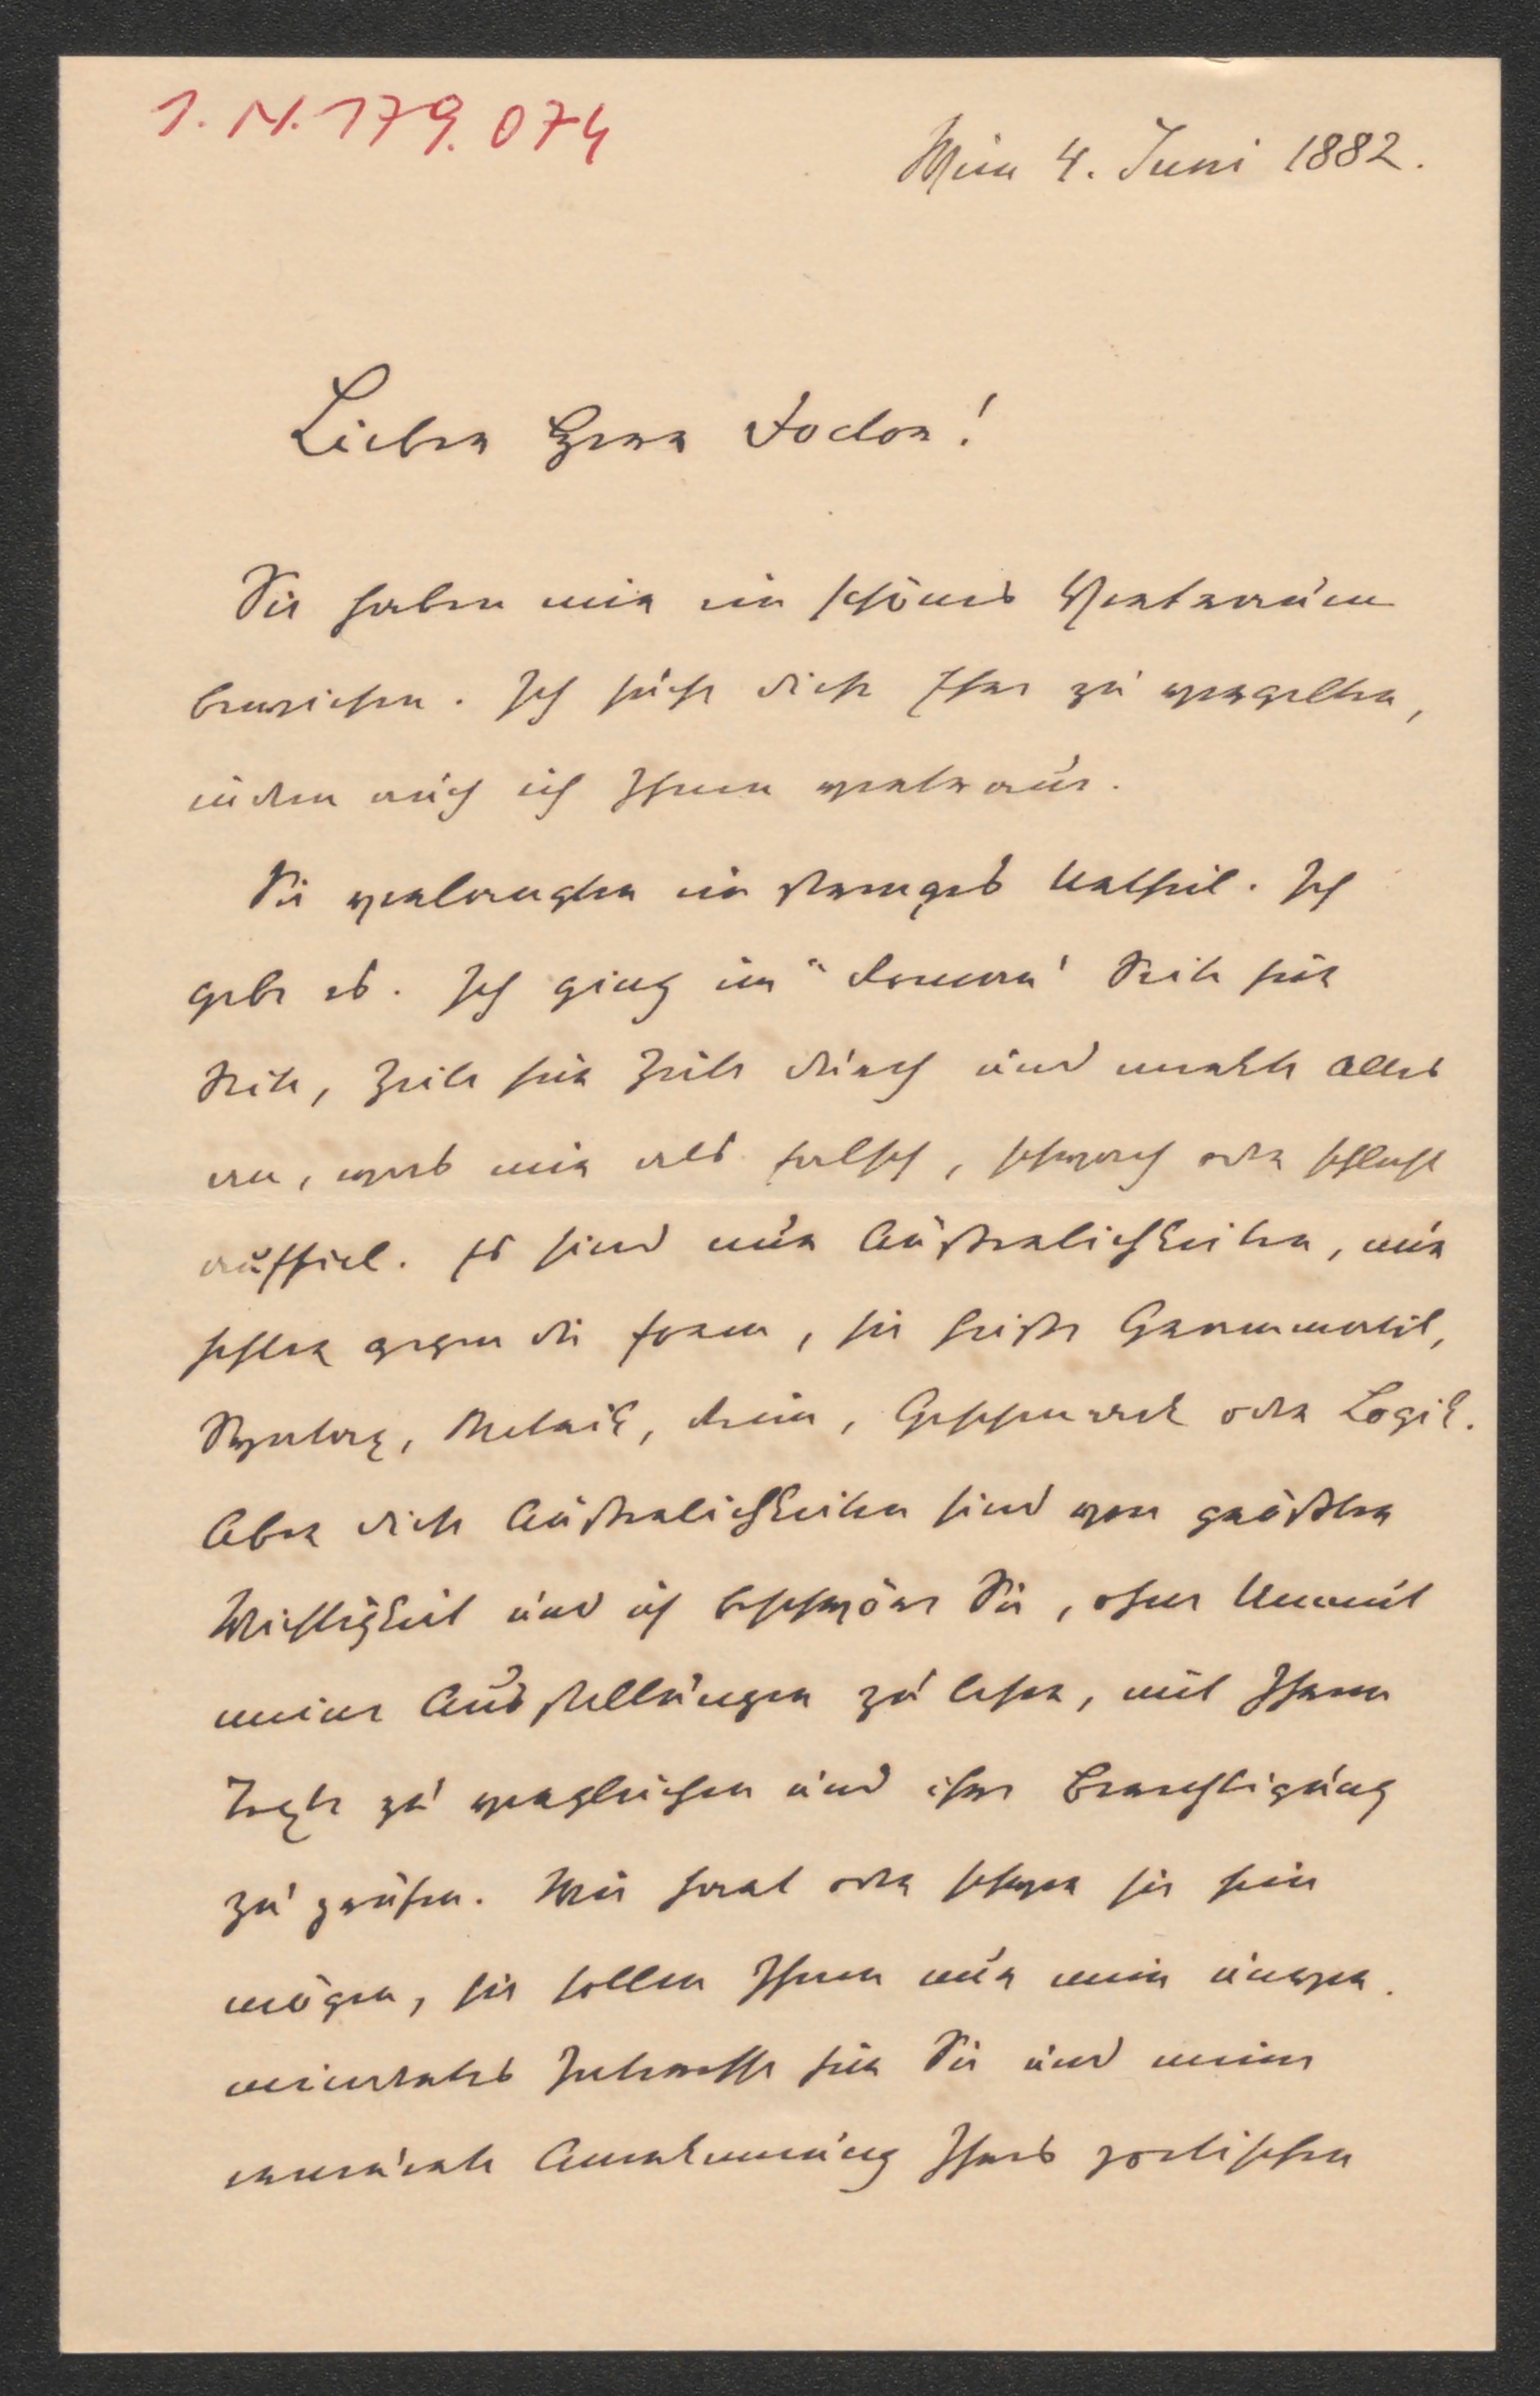 I. N. 179.074
Wien 4. Juni 1882.
Lieber Herr Doctor!
Sie haben mir ein schönes Vertrauen
bewiesen. Ich suche dieses Ihnen zu vergelten,
indem auch ich Ihnen vertraue.
Sie verlangten ein strenges Urtheil. Ich
gebe es. Ich ging im "Seite für
Seite, Zeile für Zeile durch und merkte alles
an, was mir als falsch, schwach oder schlecht
auffiel. Es sind nur Äußerlichkeiten, nur
Fehler gegen die Form, sie heiße Grammatik,
Syntax, Metrik, Reim, Geschmack oder Logik.
Aber diese Äußerlichkeiten sind von größter
Wichtigkeit und ich beschwöre Sie, ohne Unmut
meine Ausstellungen zu lesen, mit Ihrem
Texte zu vergleichen und ihre Berechtigung
zu prüfen. Wie hart oder schwer sie sein
mögen, sie sollen Ihnen nur mein unver-
mindertes Interesse für Sie und meine
erneuerte Anerkennung Ihres poetischen